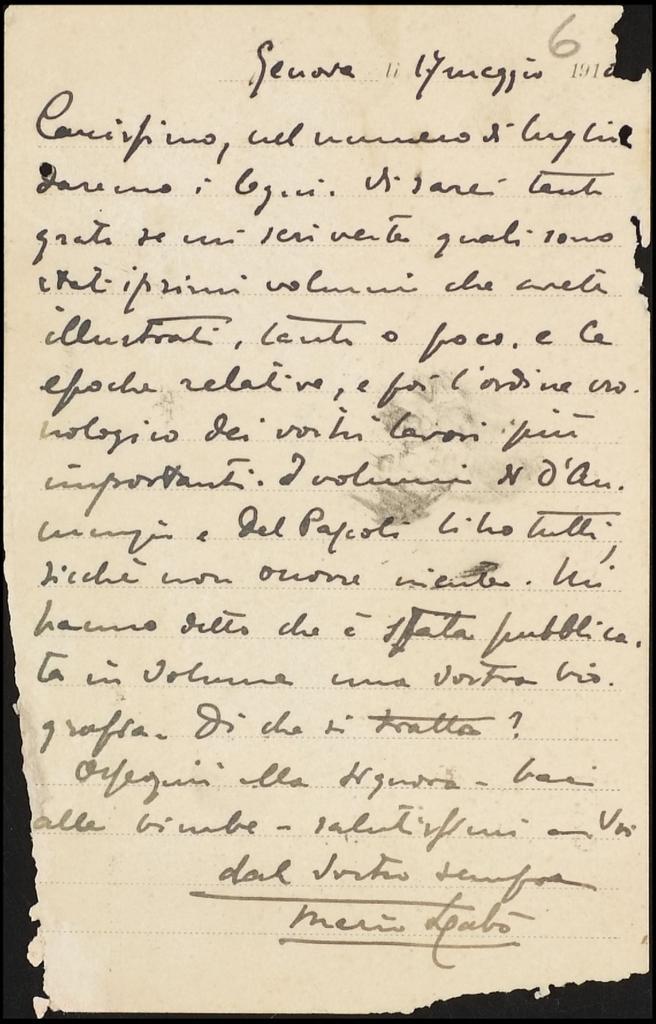 6
Genova li 17 maggio 191
Carissimo, nel numero di luglio
daremo i legni. Vi sarei tanto
grato se mi scriveste quali sono
stati i primi volumi che avete
illustrati, tanto o poco, e le
epoche relative, e poi l'ordine cro-
nologico dei vostri lavori più
importanti. I volumi di D'An-
nunzio e del Pascoli li ho tutti,
sicchè non occorre niente. Mi
hanno detto che è stata pubblica-
ta in volume una vostra bio-
grafia. Di che si tratta?
Ossequii alla signora - baci
alle bimbe - salutissimi a Voi
dal vostro sempre
Mario Labò